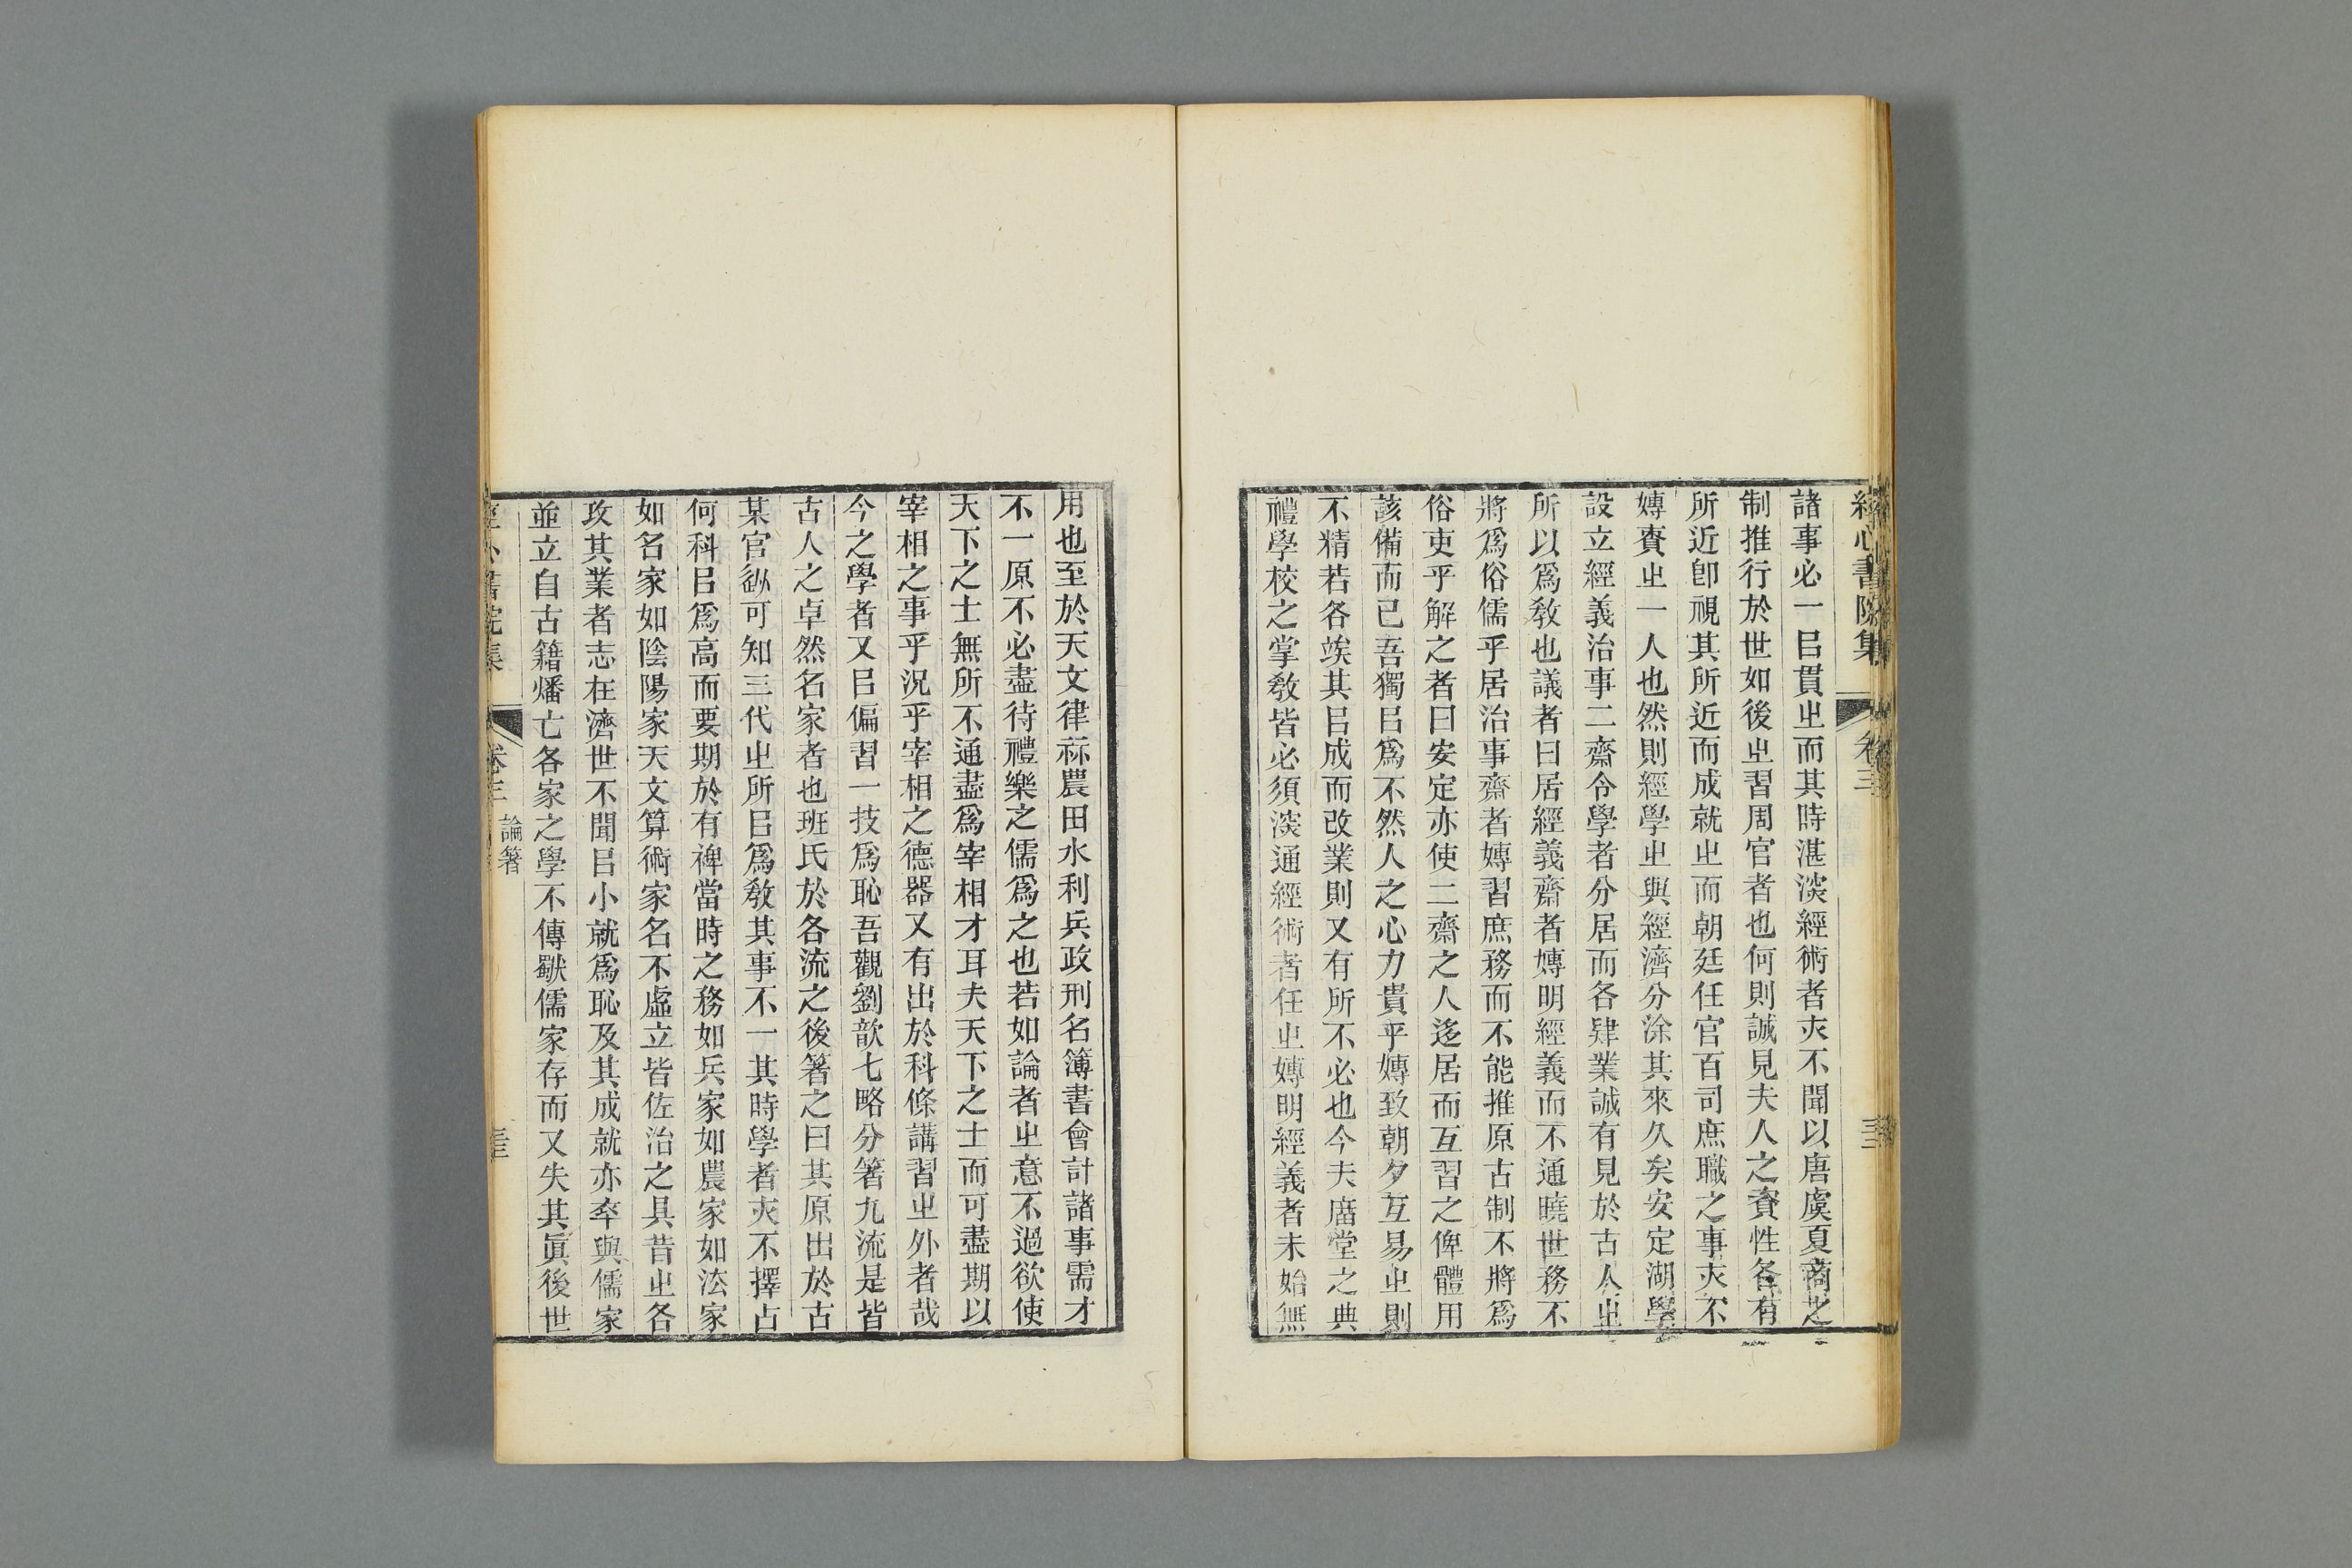 經心書院集 卷三 三二
諸事必一㠯貫㞢而其時湛淡經術者㚏不聞以唐虞夏商之
制推行於世如後㞢習周官者也何則誠見夫人之𧶠性各有
所近卽視其所近而成就㞢而朝廷任官百司庶職之事㚏不
嫥責㞢一人也然則經學㞢與經濟分涂其來久矣安定湖學
設立經義治事二齋令學者分居而各肄業誠有見於古人㞢
所以爲敎也議者曰居經義齋者嫥明經義而不通曉世務不
將爲俗儒乎居治事齋者嫥習庶務而不能推原古制不將爲
俗吏乎解之者曰安定亦使二齋之人迻居而互習之俾體用
該備而已吾獨㠯爲不然人之心力貴乎嫥致朝夕互易㞢則
不精若各竢其㠯成而改業則又有所不必也今夫庿堂之典
禮學校之掌敎皆必須淡通經術者任㞢嫥明經義者未始無
用也至於天文律秝農田水利兵政刑名簿書會計諸事需才
不一原不必盡待禮樂之儒爲之也若如論者㞢意不過欲使
天下之士無所不通盡爲宰相才耳夫天下之士而可盡期以
宰相之事乎況乎宰相之德器又有出於科條講習㞢外者哉
今之學者又㠯偏習一技爲恥吾觀劉歆七略分箸九流是皆
古人之卓然名家者也班氏於各流之後箸之曰其原出於古
某官㣲可知三代㞢所㠯爲敎其事不一其時學者㚏不擇占
何科㠯爲高而要期於有裨當時之務如兵家如農家如㳒家
如名家如陰陽家天文算術家名不虛立皆佐治之具昔㞢各
攻其業者志在濟世不聞㠯小就爲恥及其成就亦卒與儒家
並立自古籍燔亡各家之學不傳獸儒家存而又失其眞後世
經心書院集 卷三 論箸 三三